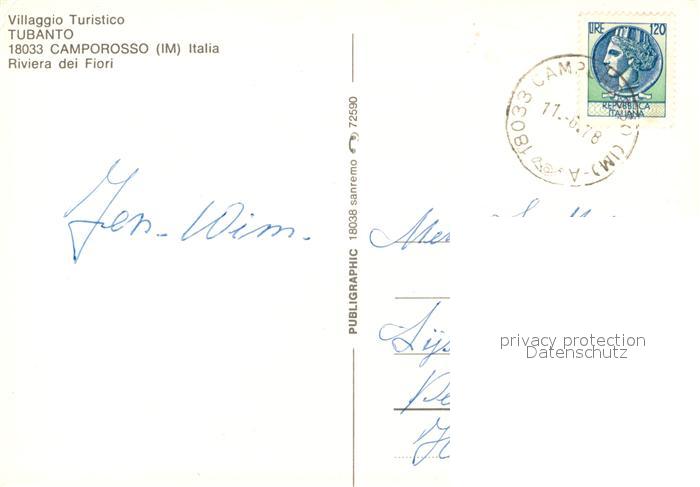 Villaggio Turistico
TUBANTO
18033 CAMPOROSSO (IM) Italia
Riviera dei Fiori
LIRE 120
REPVBBLICA
ITALIANA
18033 CAMP (IM)-A
11.-6.78
PUBLIGRAPHIC 18038 sanremo 72590
Jen - Wim.
privacy protection
Datenschutz